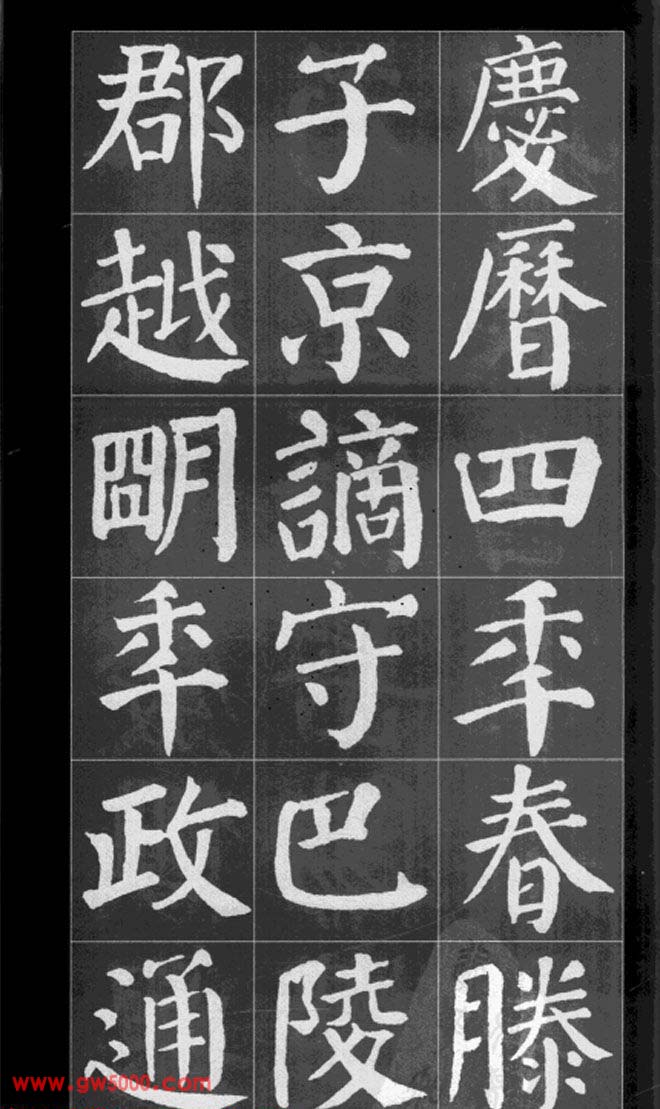 慶曆四秊春滕
子京謫守巴陵
郡越朙秊政通
www.gw5000.com